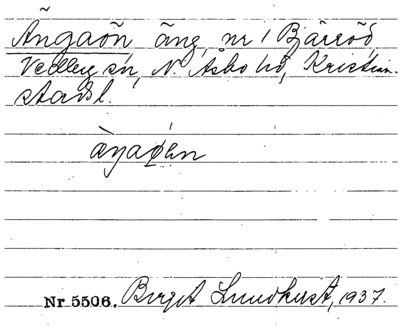 Ängaön, äng, nr 1 Bjäröd,
Vedby sn, N. Åsbo hd, Kristian-
stads l.
Nr 5506. Birgit Lundkvist, 1937.